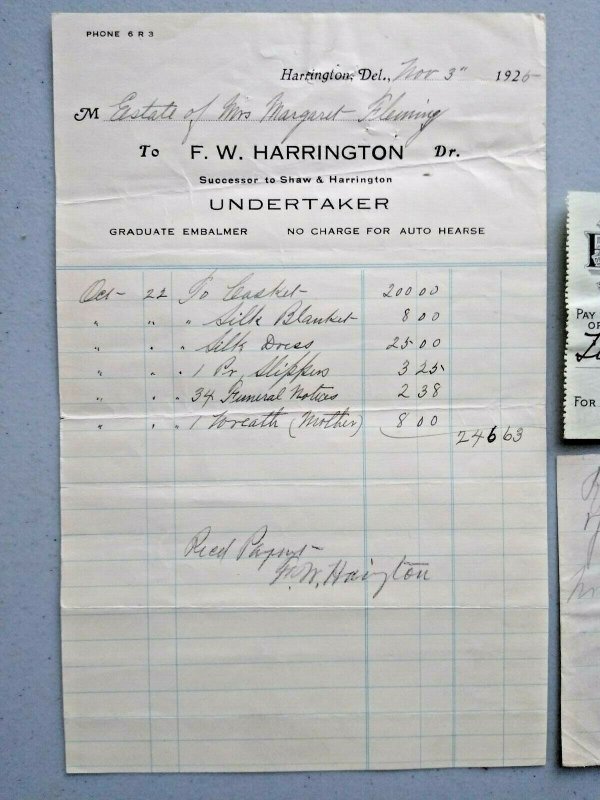 PHONE 6 R 3
Harrington, Del., Nov 3" 1925
M Estate of Mrs Margaret Fleming
To F. W. HARRINGTON Dr.
Successor to Shaw & Harrington
UNDERTAKER
GRADUATE EMBALMER NO CHARGE FOR AUTO HEARSE
Oct- 22 To Casket 200 00
" " " Silk Blanket 8 00
" " " Silk Dress 25 00
" " " 1 Pr. Slippers 3 25
" " " 34 Funeral Notices 2 38
" " " 1 Wreath (Mother) 8 00
246 63
Recd Paymt
F. W. Harrington
PAY
OF
FOR